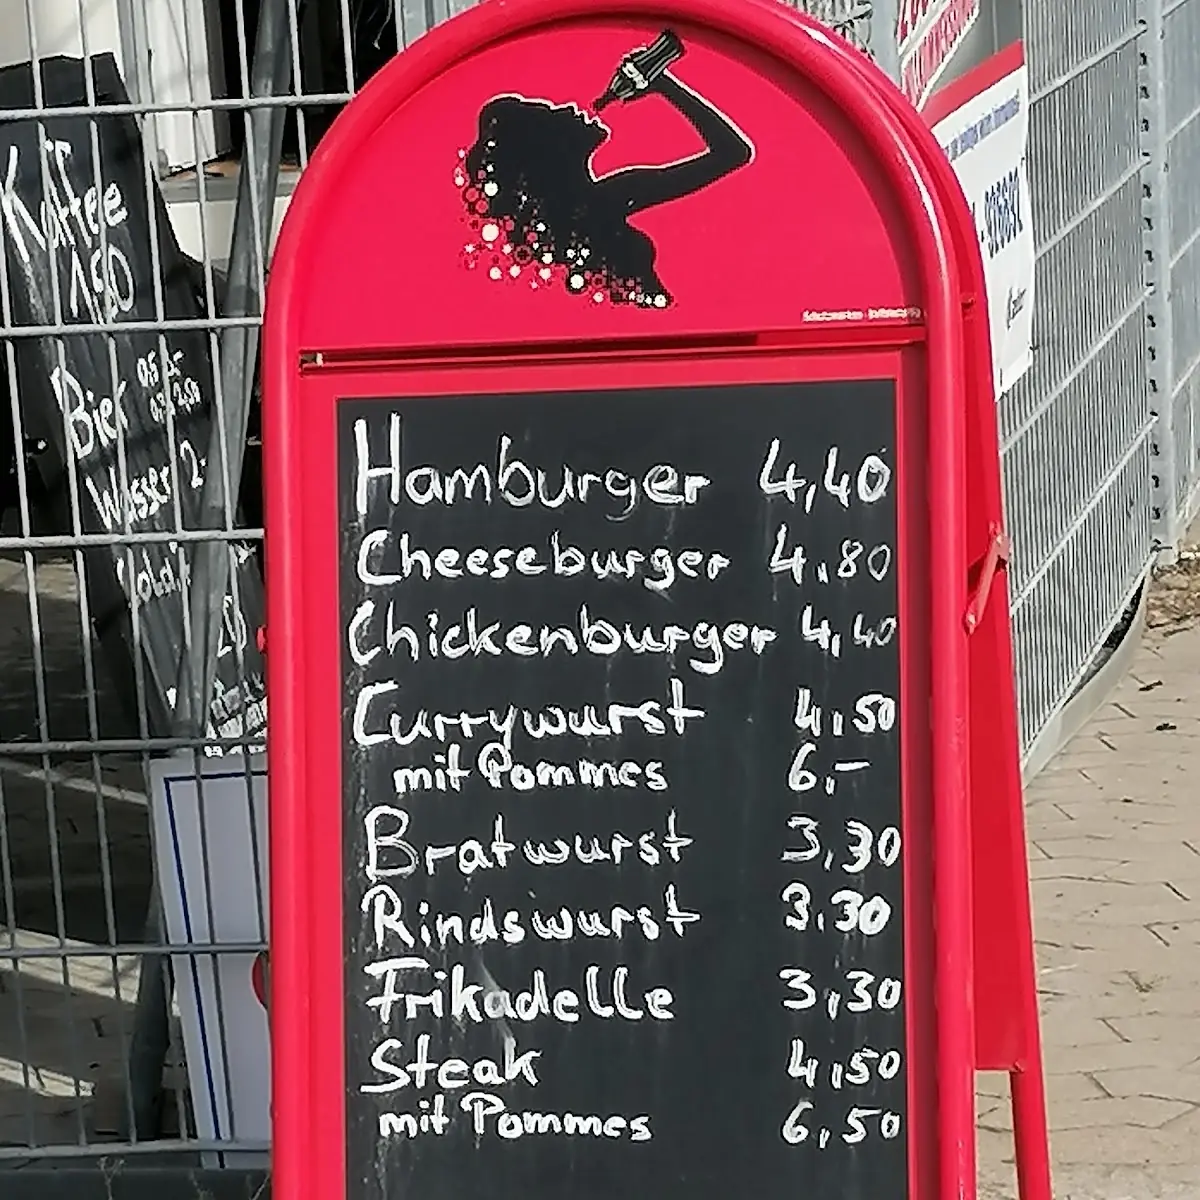 Kaffee
1,50
Bier 0,5
Wasser 2,-
Hamburger 4,40
Cheeseburger 4.80
Chickenburger 4,40
Currywurst 4,50
mit Pommes 6,-
Bratwurst 3,30
Rindswurst 3.30
Frikadelle 3,30
Steak 4,50
mit Pommes 6,50